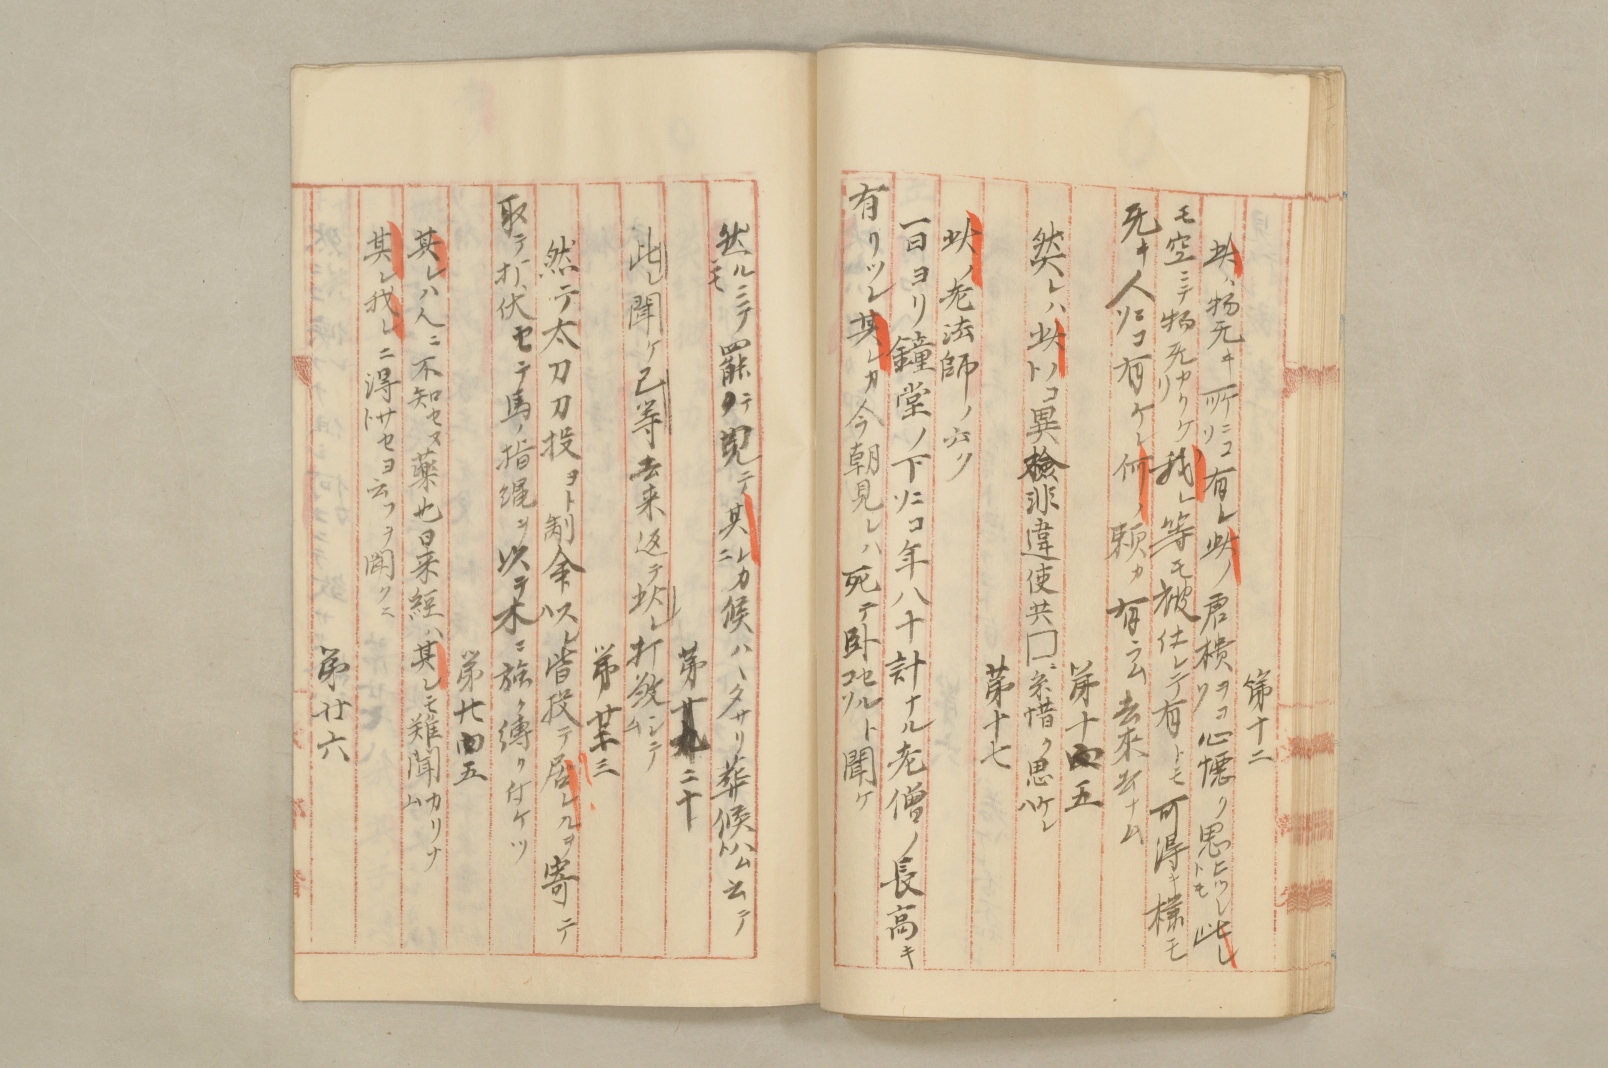 第十二
此ノ物死キ所ニコソ有レ此ノ君横ヲコソ心憾ク思ヒツレトモ此レ
モ空ニテ物死カリケリ我レ等モ被仕レテ有トモ可得キ様モ
死キ人ニコソ有ケレ何ノ頼カ有ラム去来去ナム
第十四五
然レハ此ノコト異檢非違使共□糸惜ク思ケレハ
第十七
此ノ老法師ノ云ク
一日ヨリ鐘堂ノ下ニコソ年八十計ナル老僧ノ長高キ
有リツレ其レカ今朝見レハ死テ臥セルコソト聞ケ
然ルニテモ罷タテ見テ其レカ候ハヽタサリ葬候ハムト云テ
第十九二十
此レ聞ケ己等去来返テ此レ打殺シテム
第廿三
然テ太刀刀投ヨト制命以レハ皆投テ居レルヲ寄テ
取テ打伏セテ馬ノ指縄ヲ以テ木ニ強ク縛リ付ケツ
第廿四五
其レハ人ニ不知セヌ薬也日来経ハ其レモ難聞カリナム
其レ我レニ得サセヨト云フヲ聞クニ
第廿六